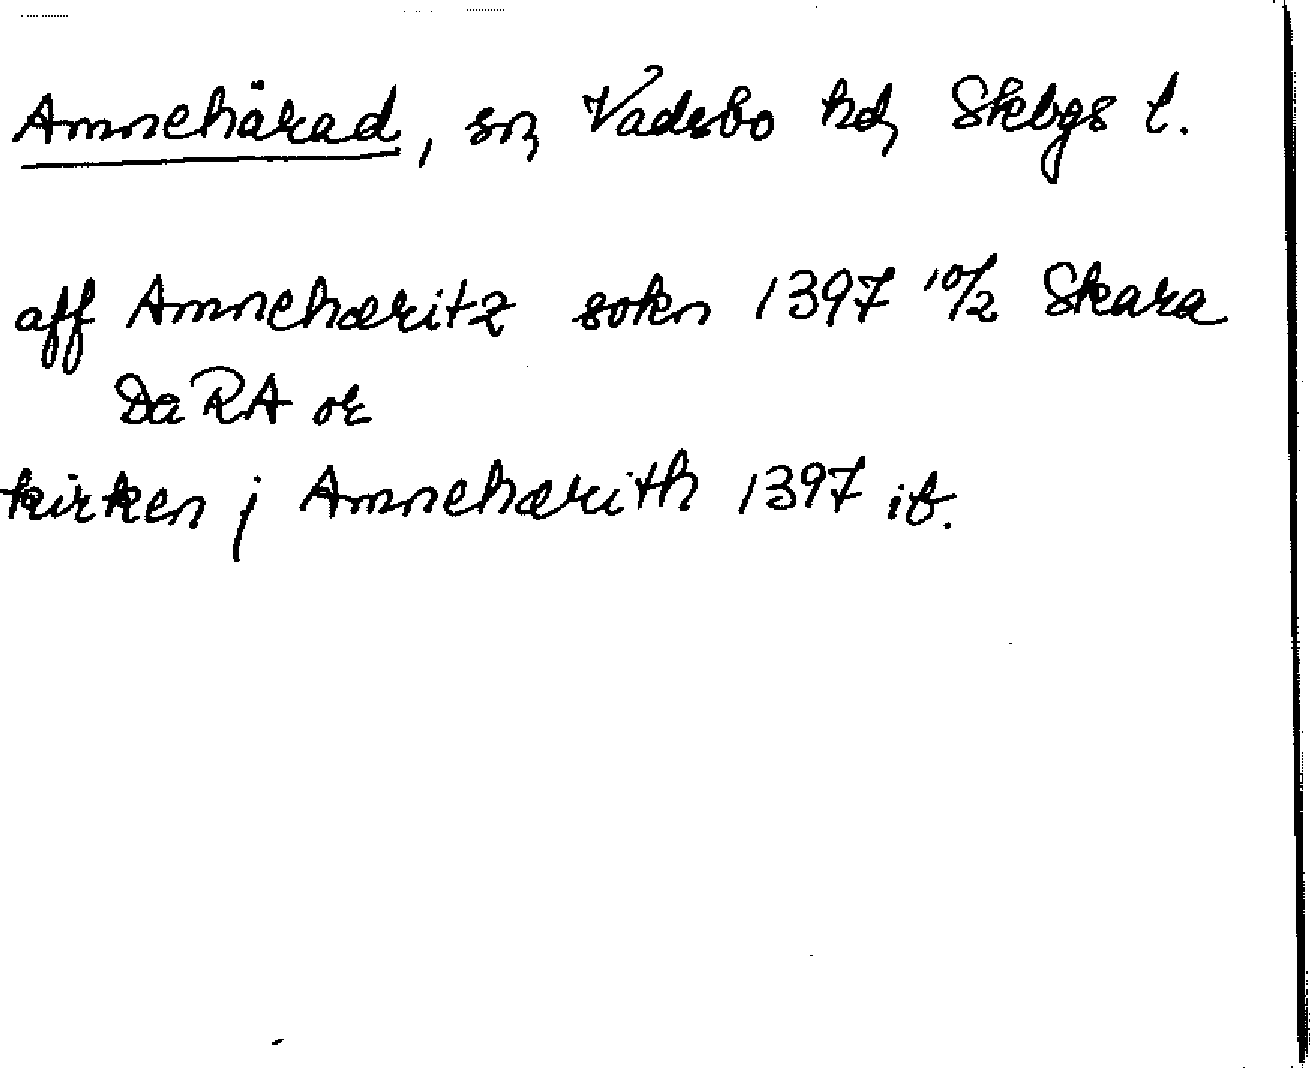 Amnehärad, sn, Vadsbo hd, Skbgs l.
aff Amnehæritz sokn 1397 10/2 Skara
Da RA or
kirken j Amnehærith 1397 ib.